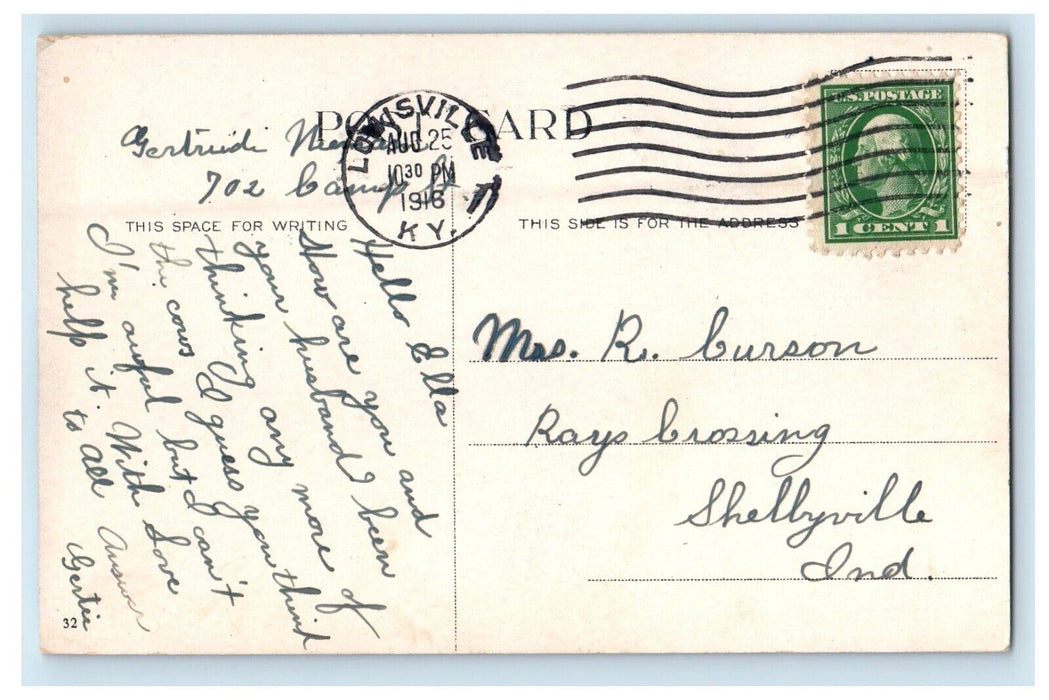 POST CARD
Gertrude
702 Camp St
LOUISVILLE
AUG 25
10 30 PM
1916
KY.
1
U.S. POSTAGE
1 CENT 1
THIS SPACE FOR WRITING
THIS SIDE IS FOR THE ADDRESS
Hello Ella
How are you and
your husband I been
thinking any more of
the cows I guess you think
I'm awful but I can't
help it. With Love
to all Answer
Gertie
Mrs. R. Curson
Rays Crossing
Shellyville
Ind.
32